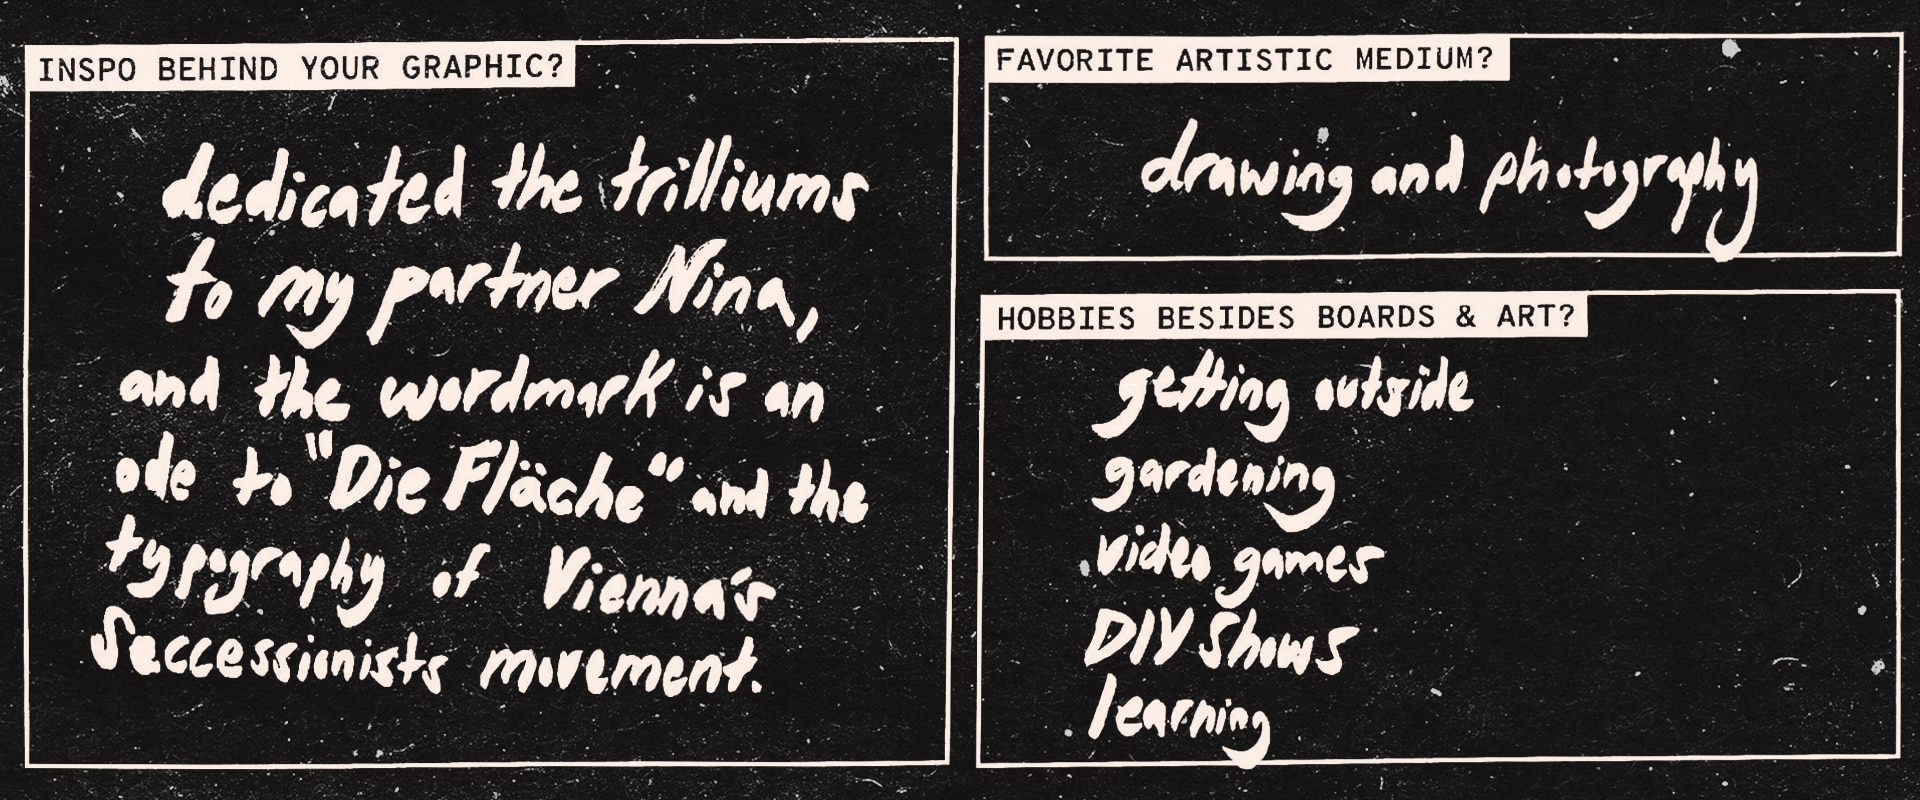 INSPO BEHIND YOUR GRAPHIC?
dedicated the trilliums
to my partner Nina,
and the wordmark is an
ode to "Die Fläche" and the
typography of Vienna's
Saccessionists movement.
FAVORITE ARTISTIC MEDIUM?
drawing and photography
HOBBIES BESIDES BOARDS & ART?
getting outside
gardening
video games
DIY Shows
learning